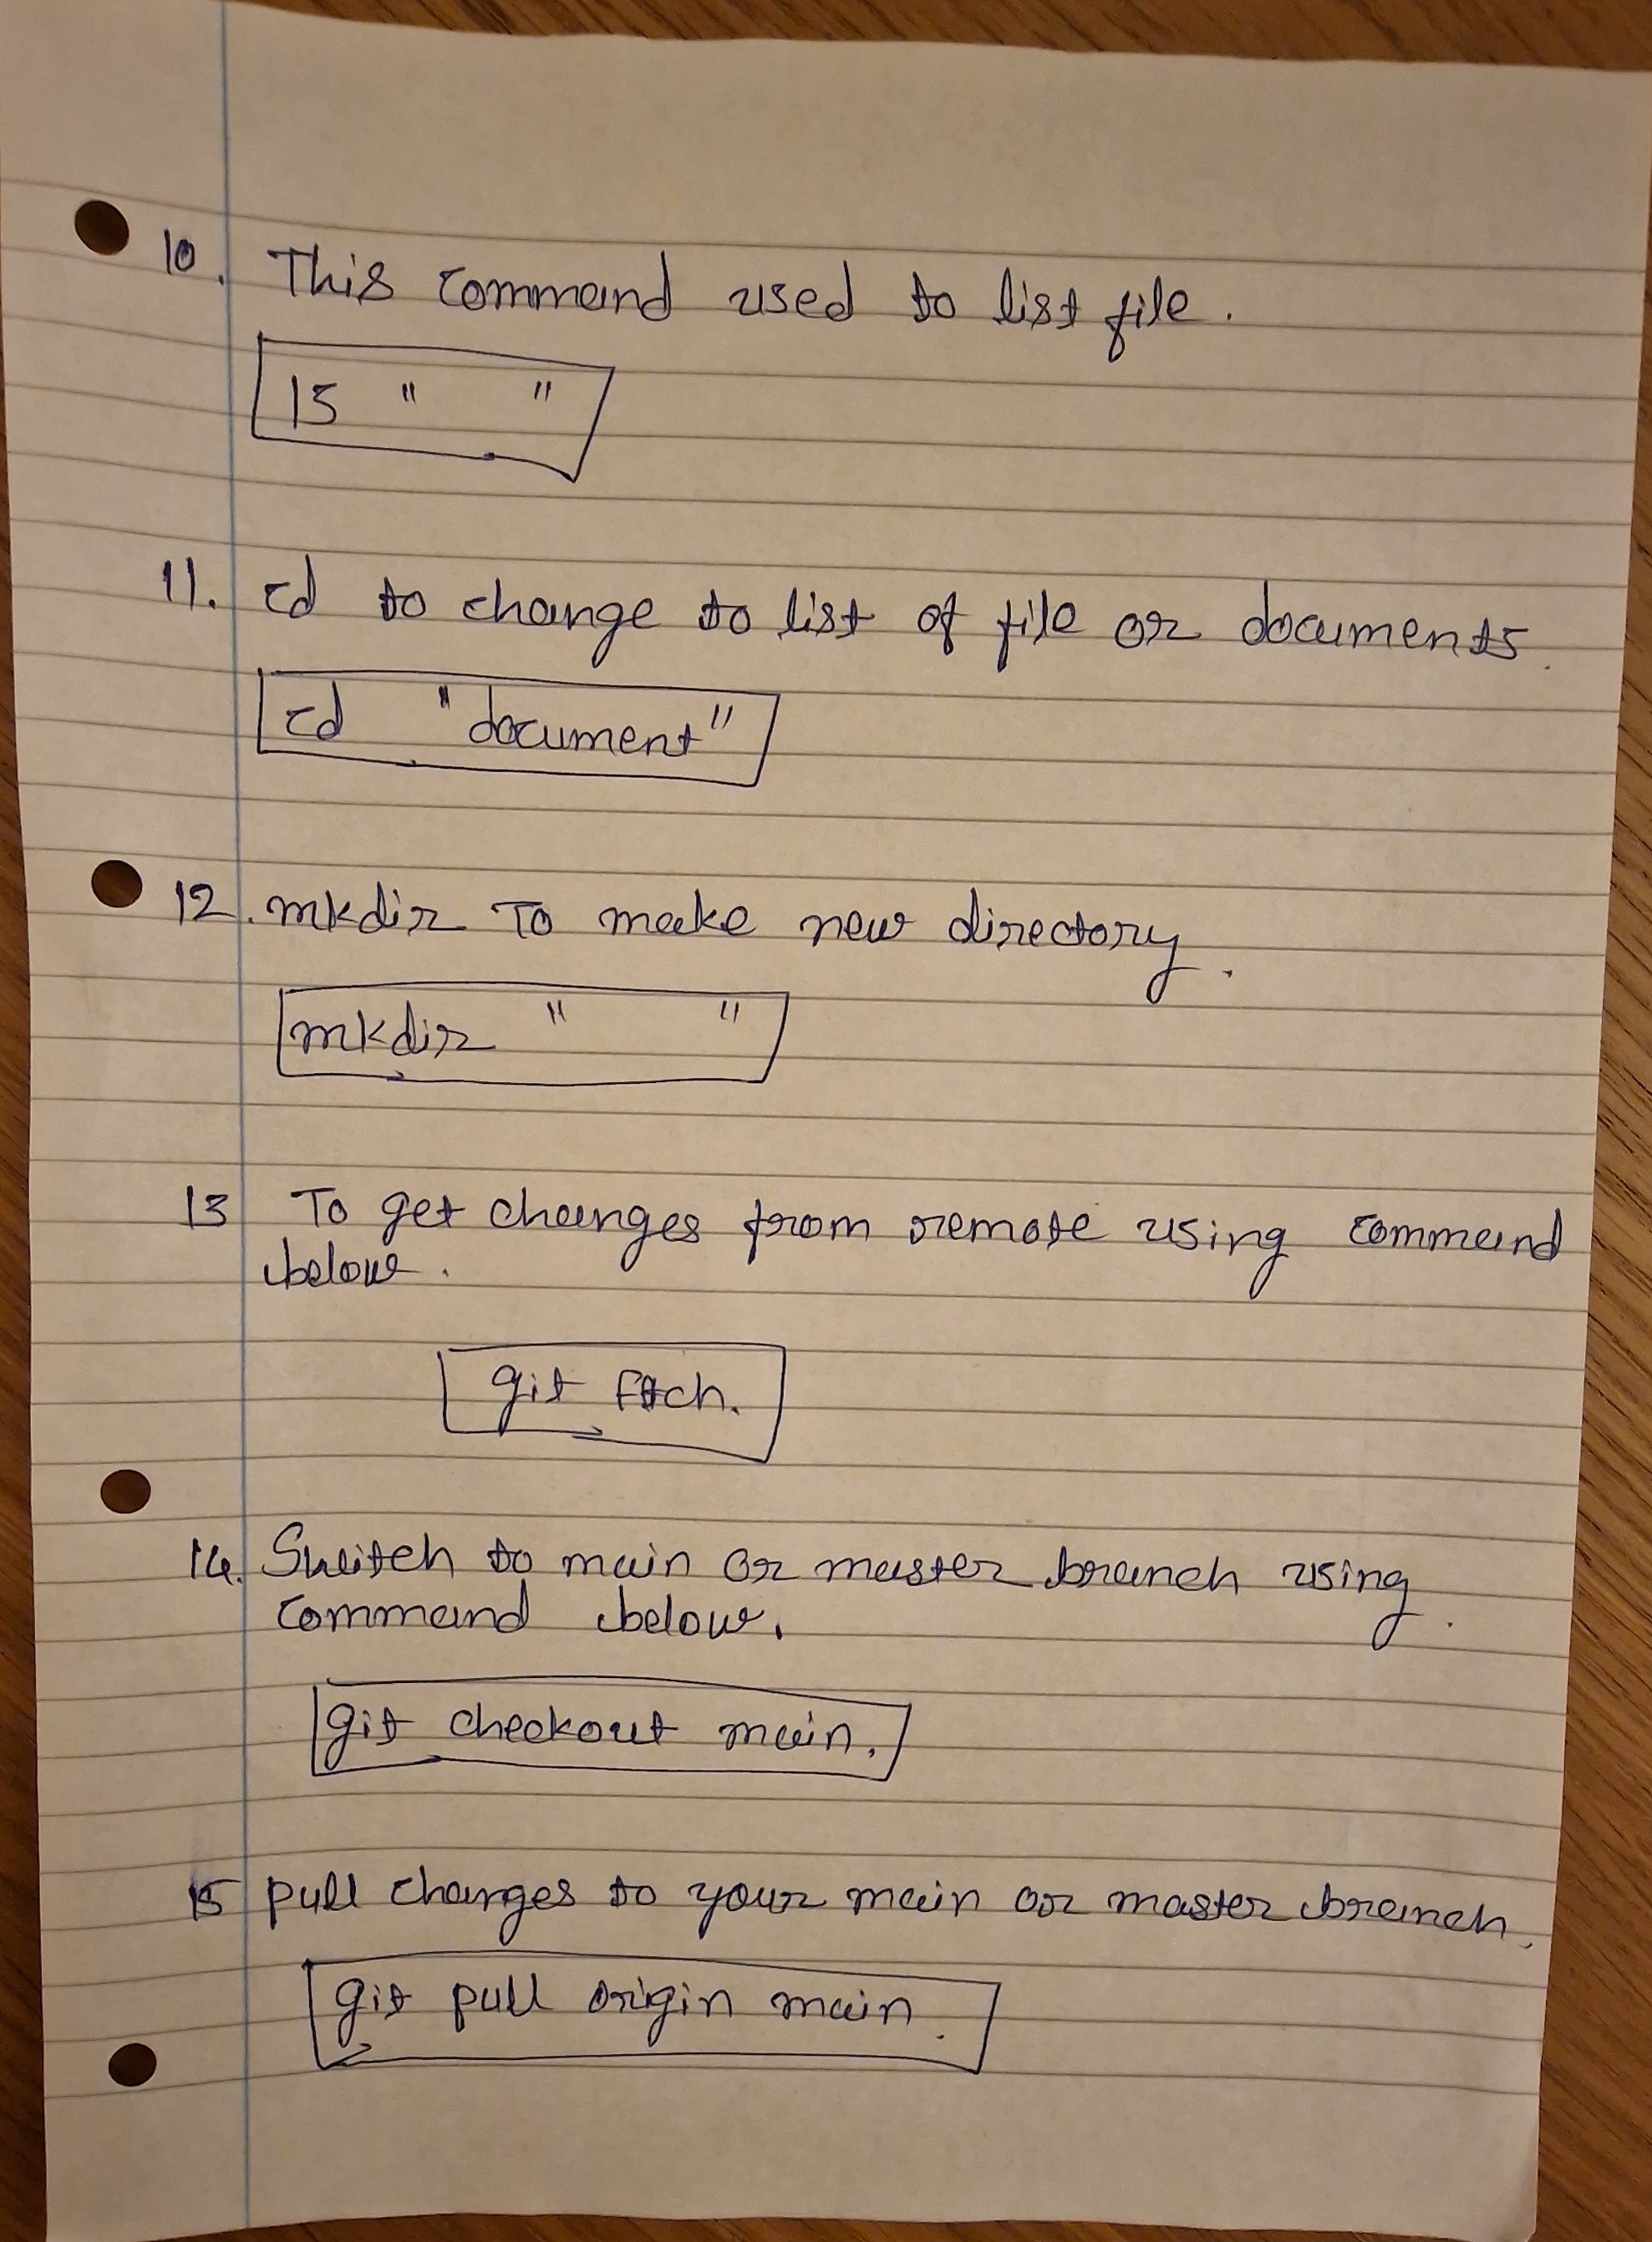 10. This command used to list file.
ls " "
11. cd to change to list of file or documents.
cd "document"
12. mkdir To make new directory.
mkdir " "
13 To get changes from remote using command
below.
git ftch.
14. Switch to main or master branch using.
command below.
git checkout main.
15 pull changes to your main or master branch.
git pull origin main.